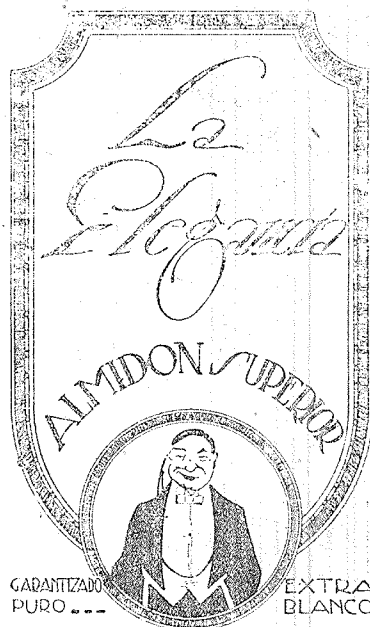 La
Elegancia
ALMIDON SUPERIOR
GARANTIZADO
PURO ---
EXTRA
BLANCO